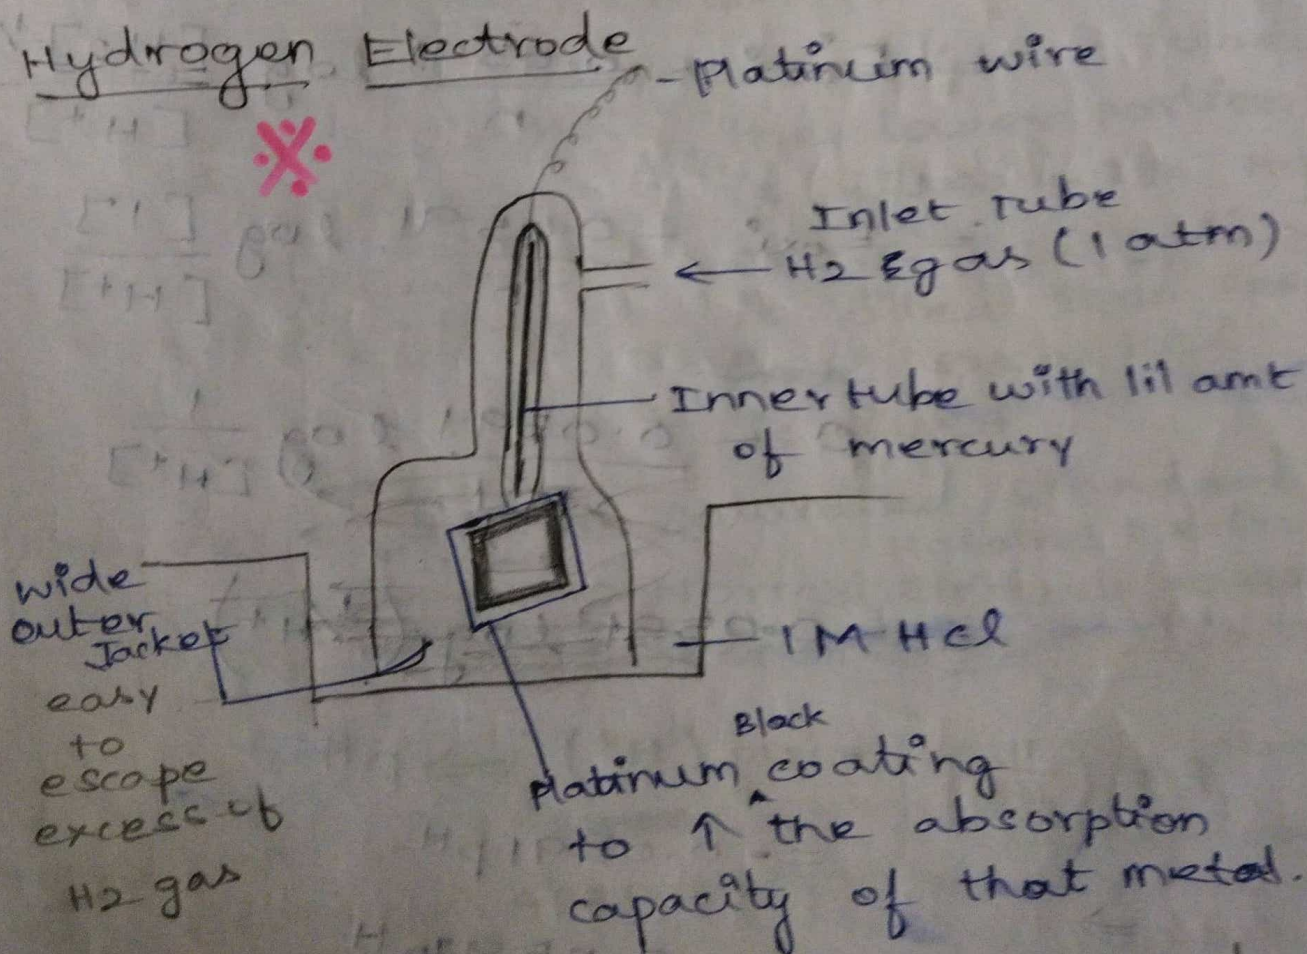 Hydrogen Electrode
Platinum wire
Inlet Tube
H2 gas (1 atm)
Inner tube with lil amt
of mercury
wide
outer
Jacket
easy
to
escape
excess of
H2 gas
1 M HCl
Black
Platinum coating
to ↑ the absorption
capacity of that metal.